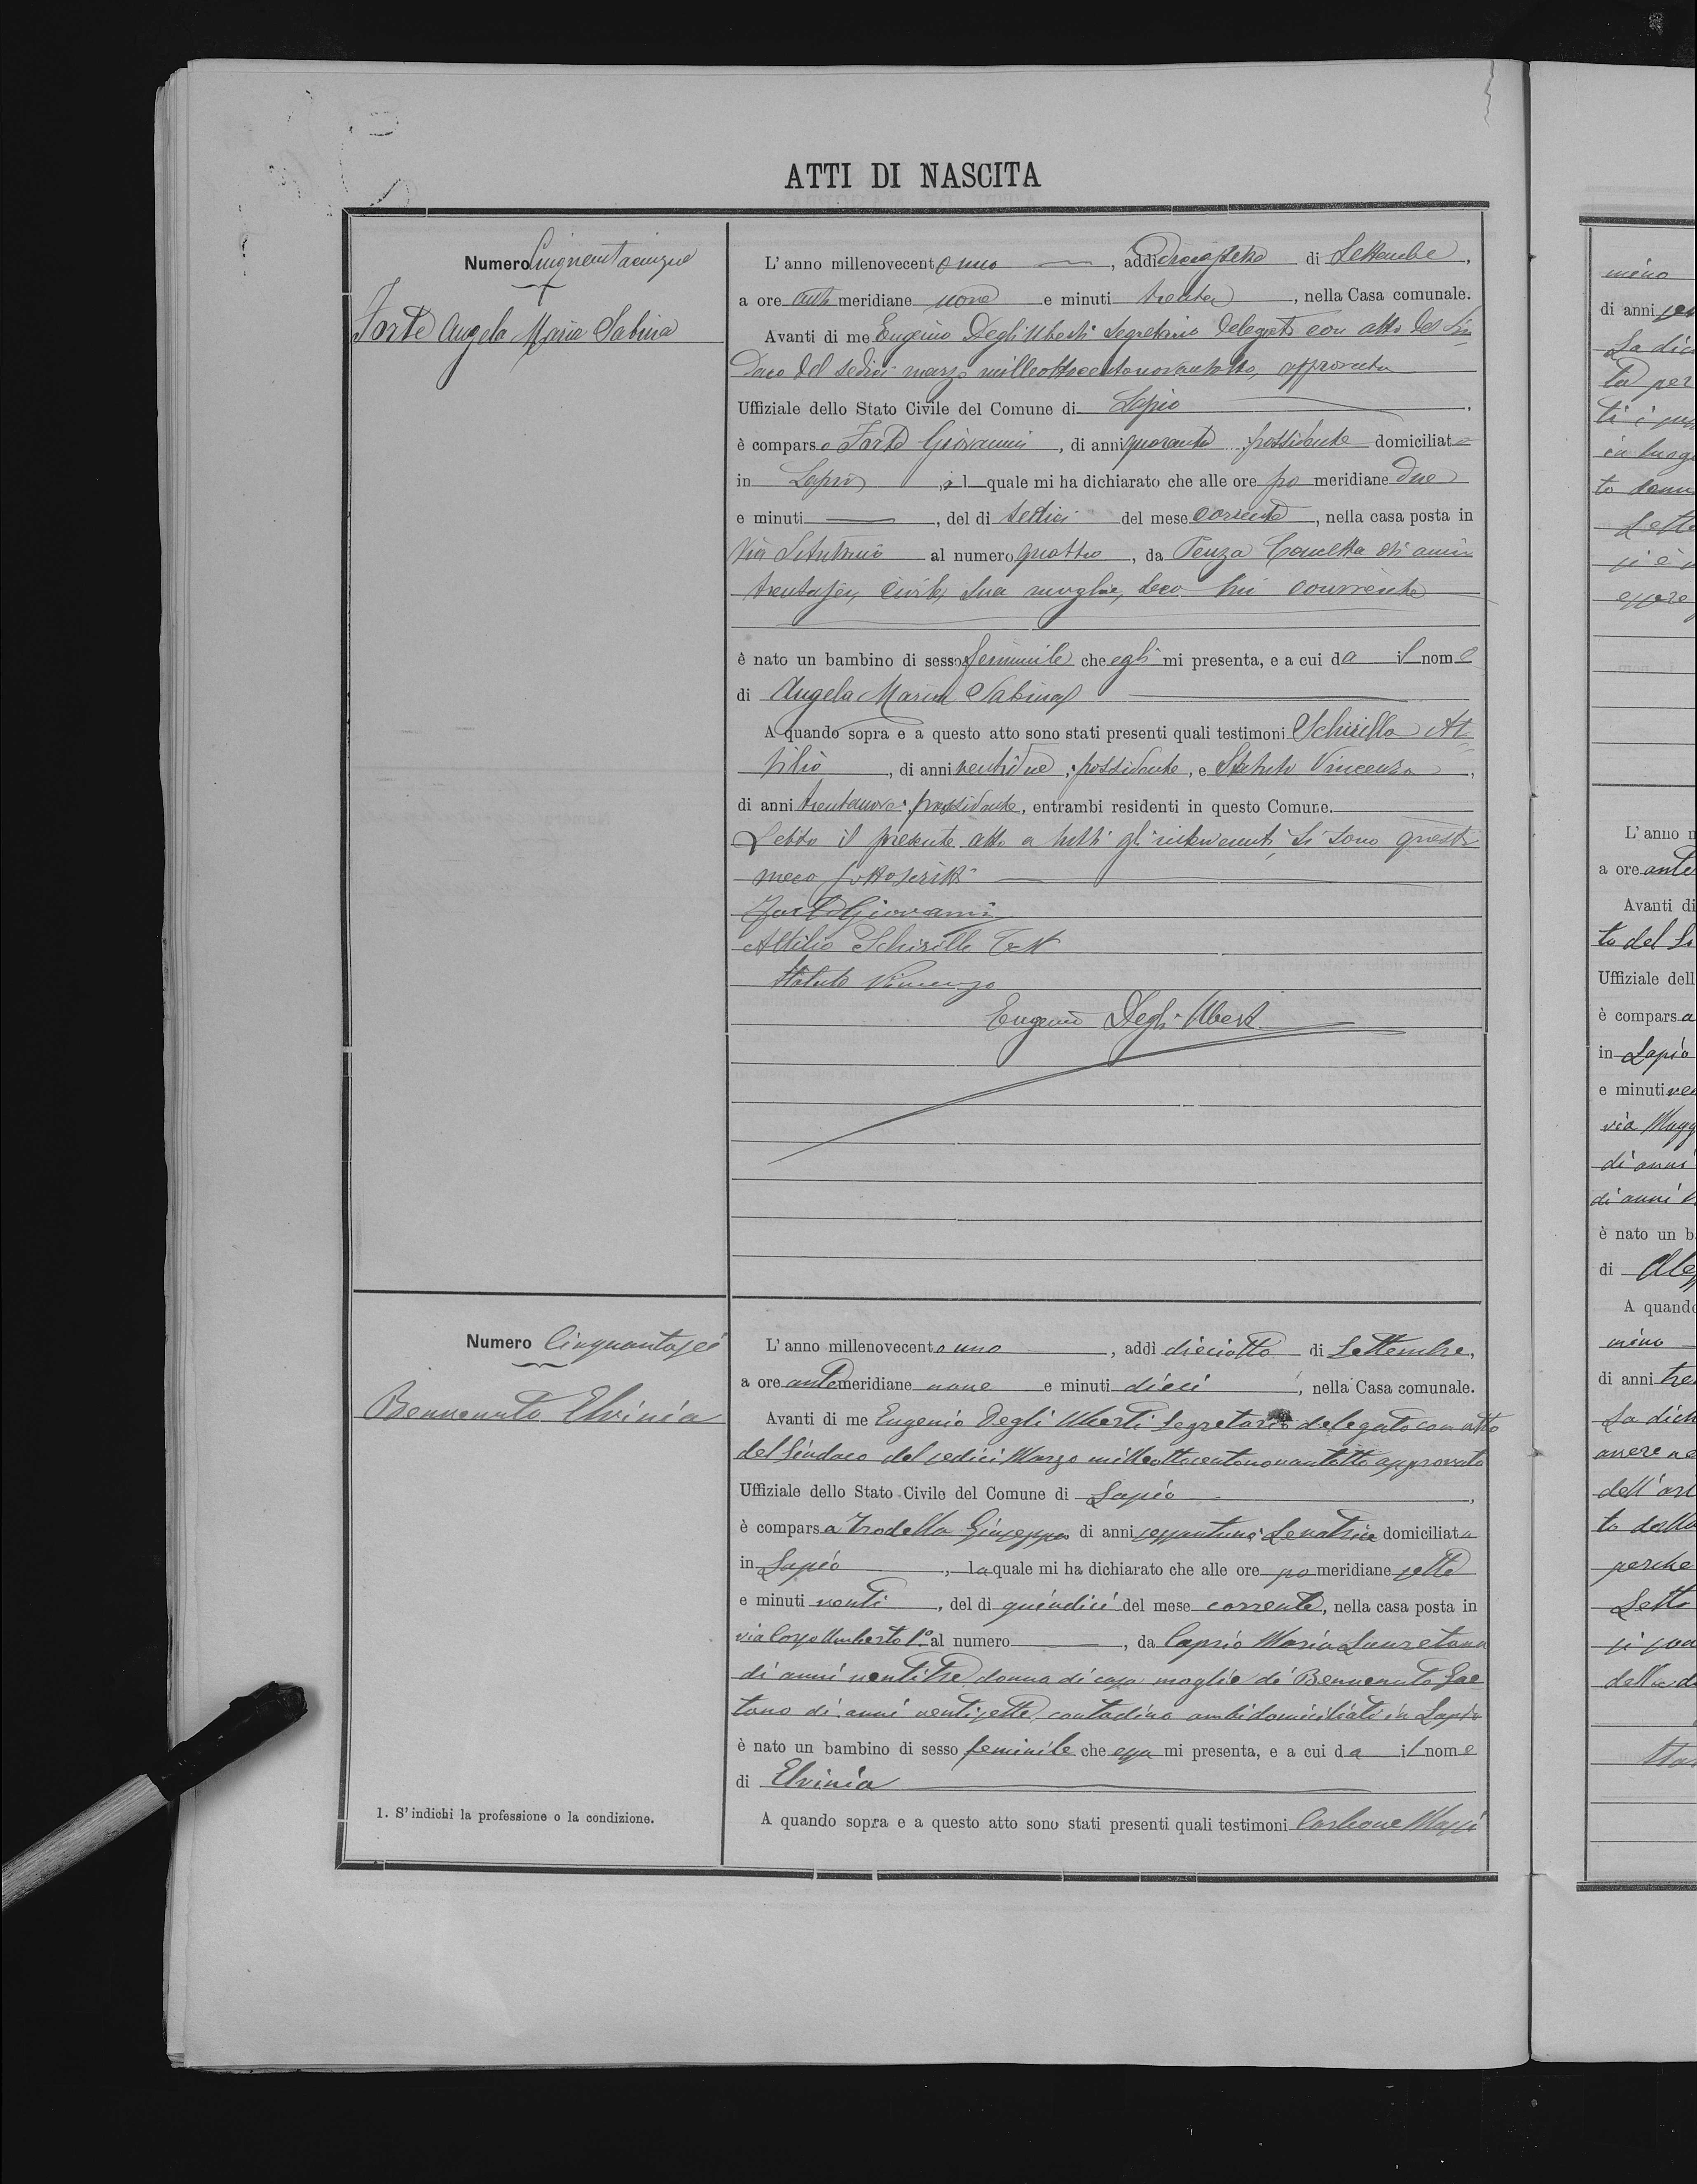 ATTI DI NASCITA
Numero Cinquantacinque
Forte Angela Maria Sabina
L'anno millenovecento uno, addì diciassette di Settembre,
a ore anti meridiane nove e minuti trenta, nella Casa comunale.
Avanti di me Eugenio Degli Uberti Segretario delegato con atto del Sin
daco del sedici marzo milleottocentonovantotto, approvato
Uffiziale dello Stato Civile del Comune di Lapio.
è comparso Forte Giovanni, di anni quaranta, possidente domiciliato
in Lapio, il quale mi ha dichiarato che alle ore po meridiane due
e minuti, del dì sedici del mese corrente, nella casa posta in
Via S. Antonio al numero quattro, da Penza Concetta di anni
trentasei, civile, sua moglie, seco lui convivente
è nato un bambino di sesso feminile che egli mi presenta, e a cui da il nome
di Angela Maria Sabina
A quando sopra e a questo atto sono stati presenti quali testimoni Schirillo At
tilio, di anni ventidue, possidente, e Statuto Vincenzo,
di anni trentanove, possidente, entrambi residenti in questo Comune.
Letto il presente atto a tutti gli intervenuti, si sono questi
meco sottoscritti
Forte Giovanni
Attilio Schirillo
Statuto Vincenzo
Eugenio Degli Uberti
Numero Cinquantasei
Benvenuto Elvinia
L'anno millenovecento uno, addì dieciotto di Settembre,
a ore antemeridiane nove e minuti dieci, nella Casa comunale.
Avanti di me Eugenio Degli Uberti Segretario delegato con atto
del Sindaco del sedici Marzo milleottocentonovantotto approvato
Uffiziale dello Stato Civile del Comune di Lapio,
è comparsa Trodella Giuseppa di anni sessantuno Levatrice domiciliata
in Lapio, la quale mi ha dichiarato che alle ore po meridiane sette
e minuti venti, del dì quindici del mese corrente, nella casa posta in
via Corso Umberto 1.º al numero, da Caprio Maria Lauretana
di anni ventitre donna di casa moglie di Benvenuto Gae
tano di anni ventisette, contadino ambi domiciliati in Lapio
è nato un bambino di sesso feminile che essa mi presenta, e a cui da il nome
di Elvinia
A quando sopra e a questo atto sono stati presenti quali testimoni Carbone Massi
1. S'indichi la professione o la condizione.